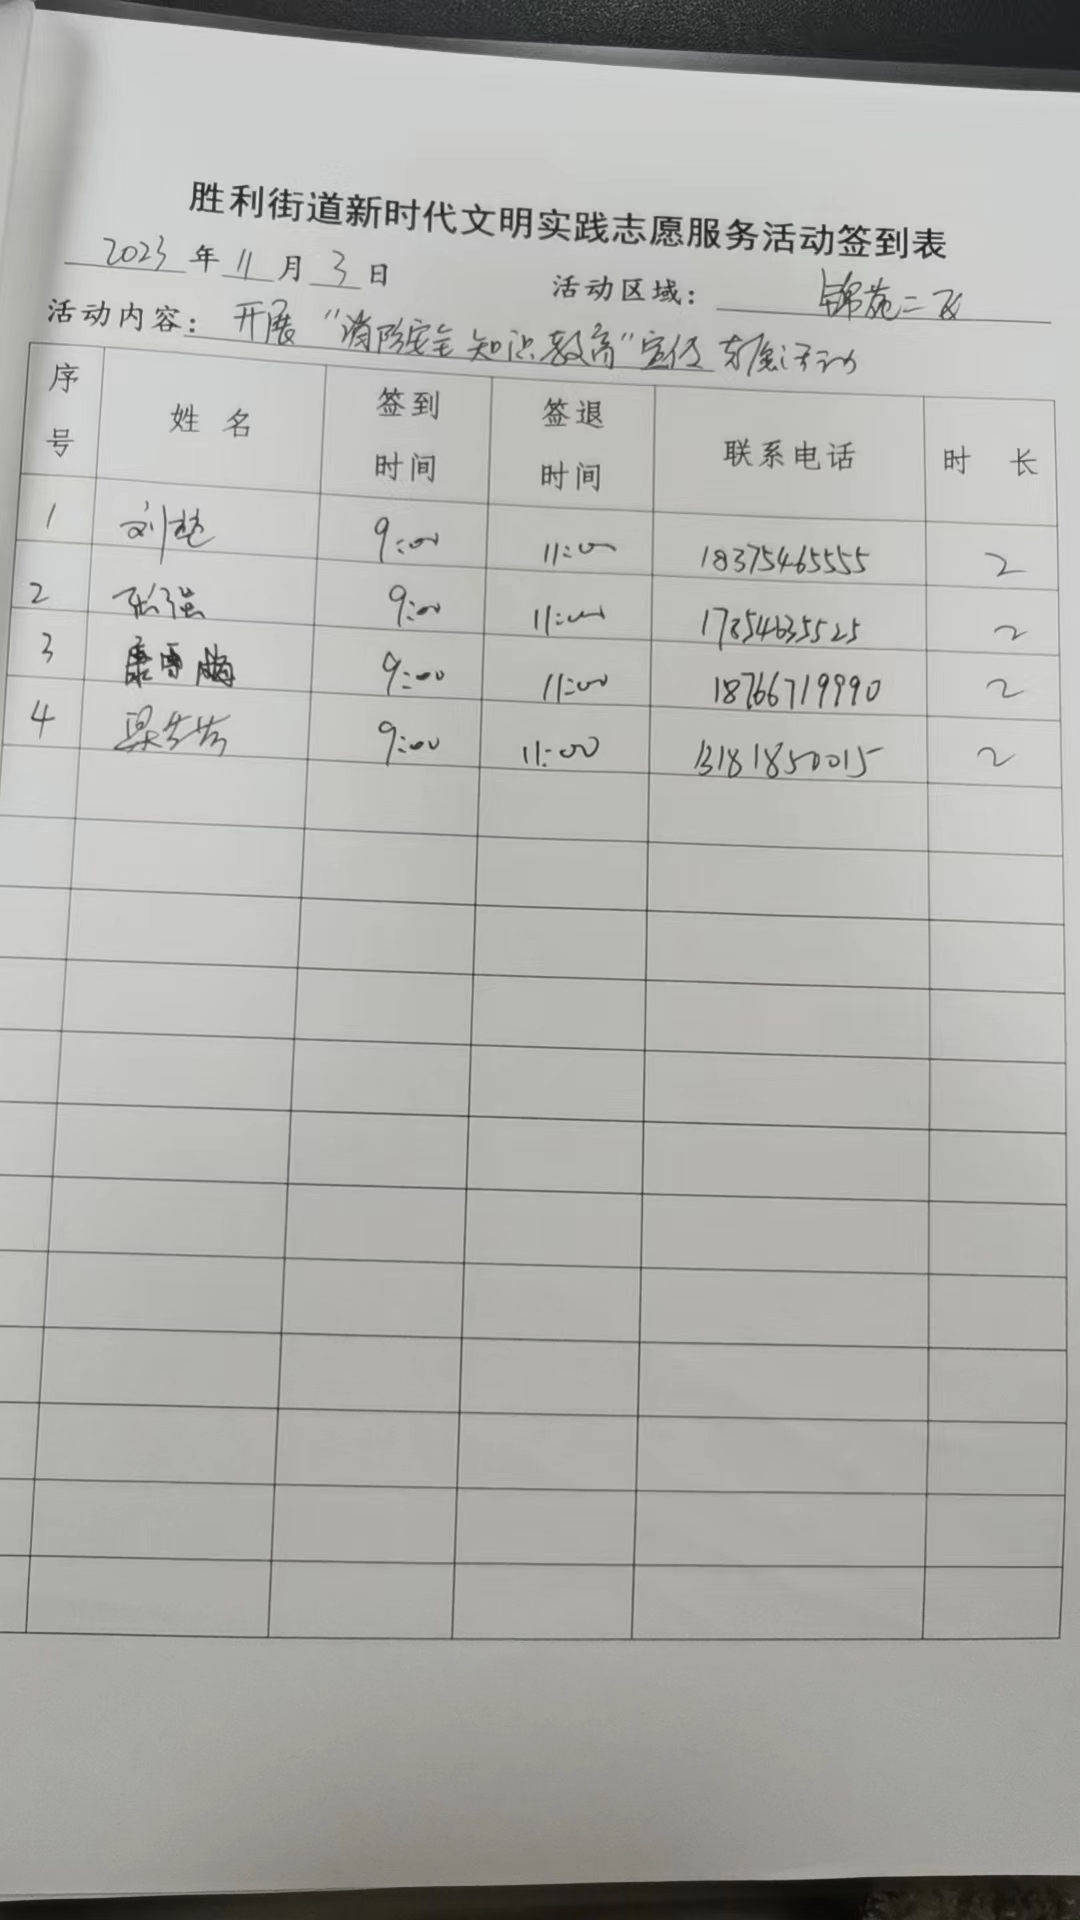 胜利街道新时代文明实践志愿服务活动签到表
2023 年 11 月 3 日 活动区域: 锦苑二区
活动内容: 开展“消防安全知识教育”宣传志愿活动
序号 姓名 签到时间 签退时间 联系电话 时长
1 刘 9:00 11:00 18375465555 2
2 张强 9:00 11:00 17854635525 2
3 康 9:00 11:00 18766719990 2
4 梁 9:00 11:00 13181850015 2